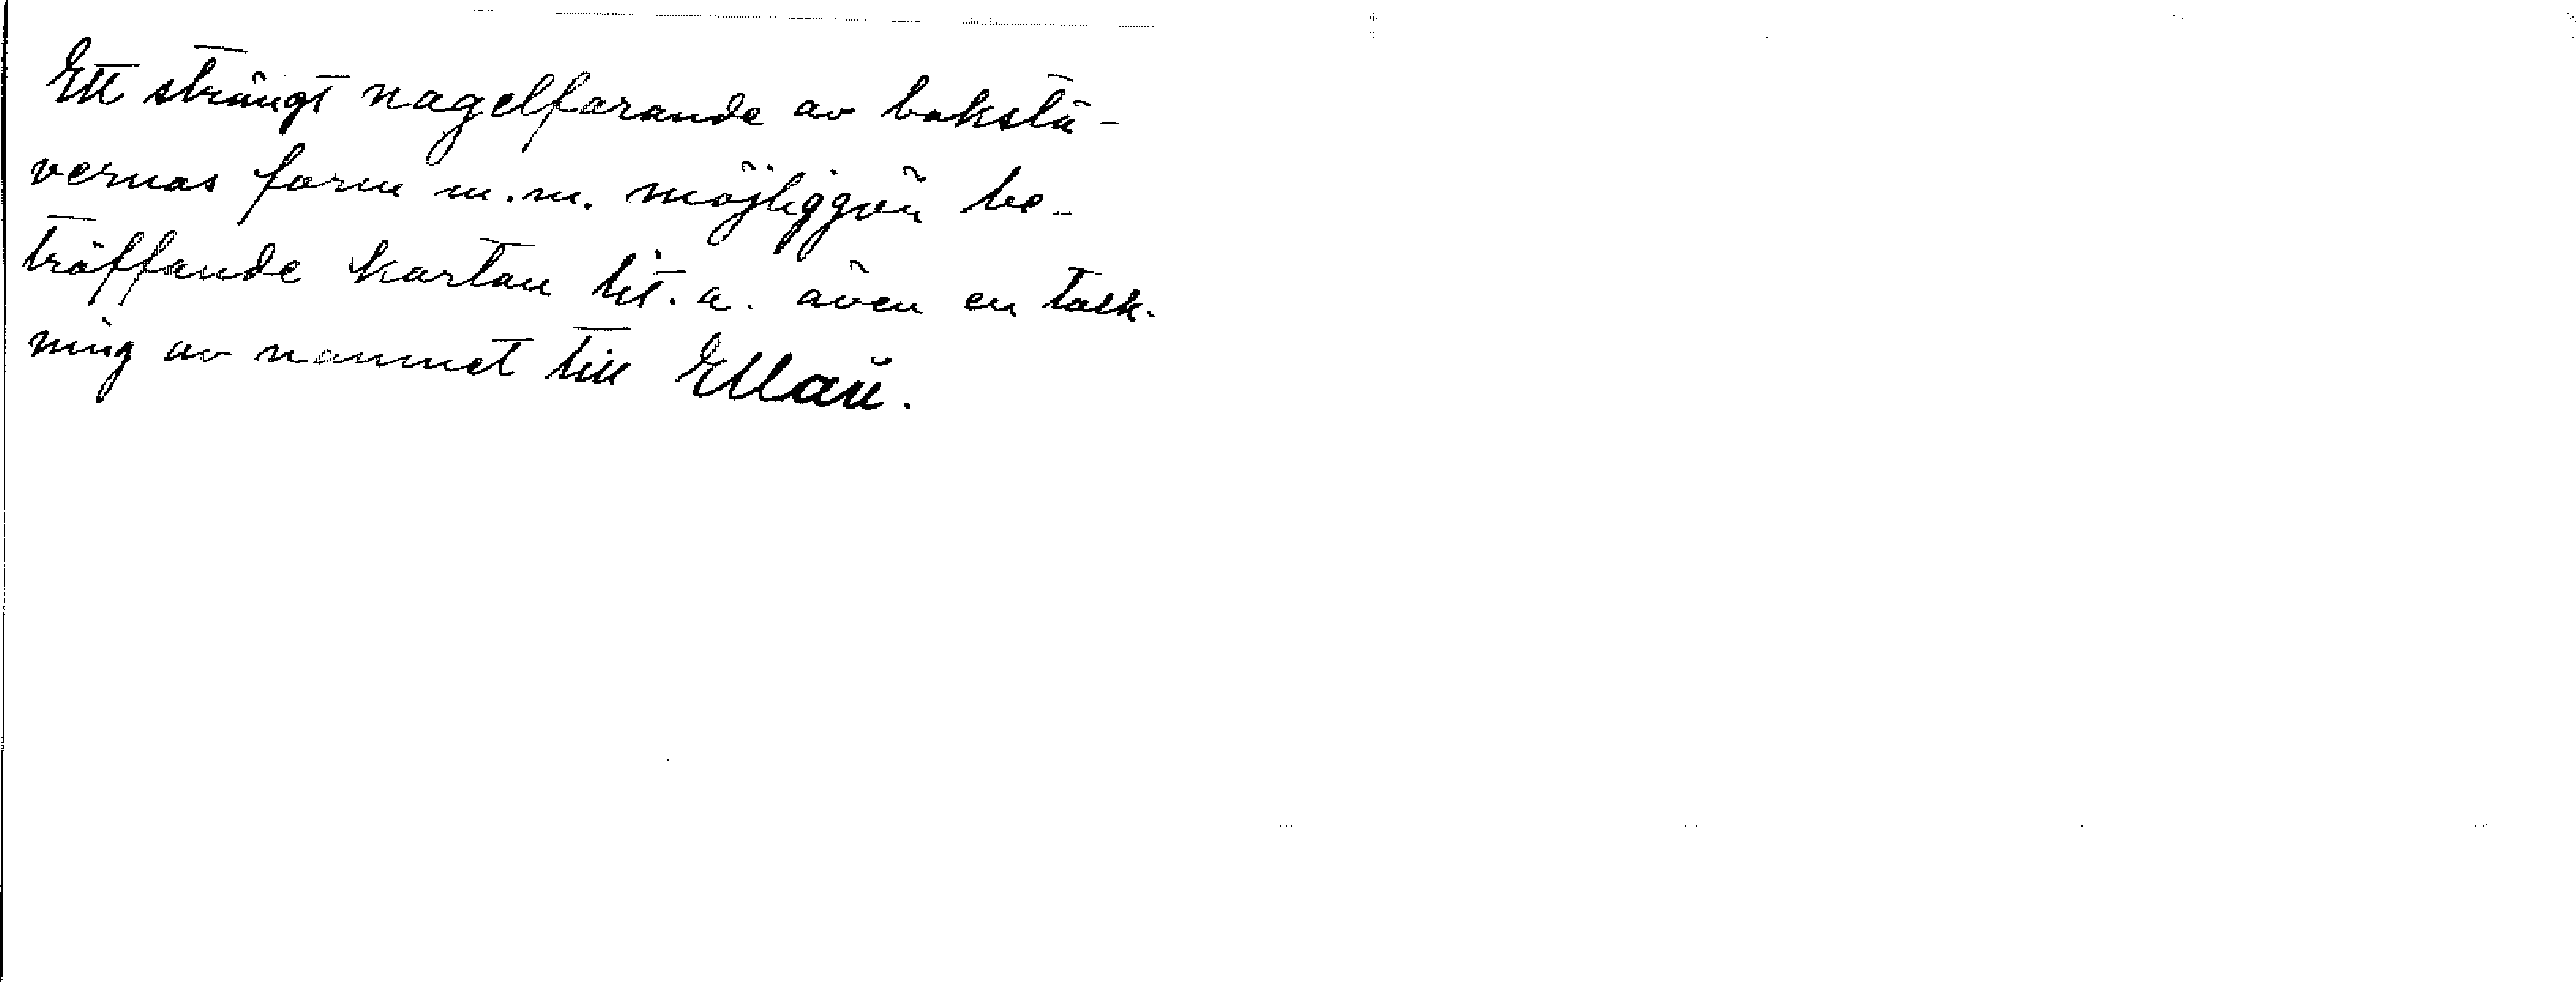 Ett strängt nagelfarande av bokstä-
vernas form m.m. möjliggör be-
träffande kartan lit. a. även en tolk-
ning av namnet till